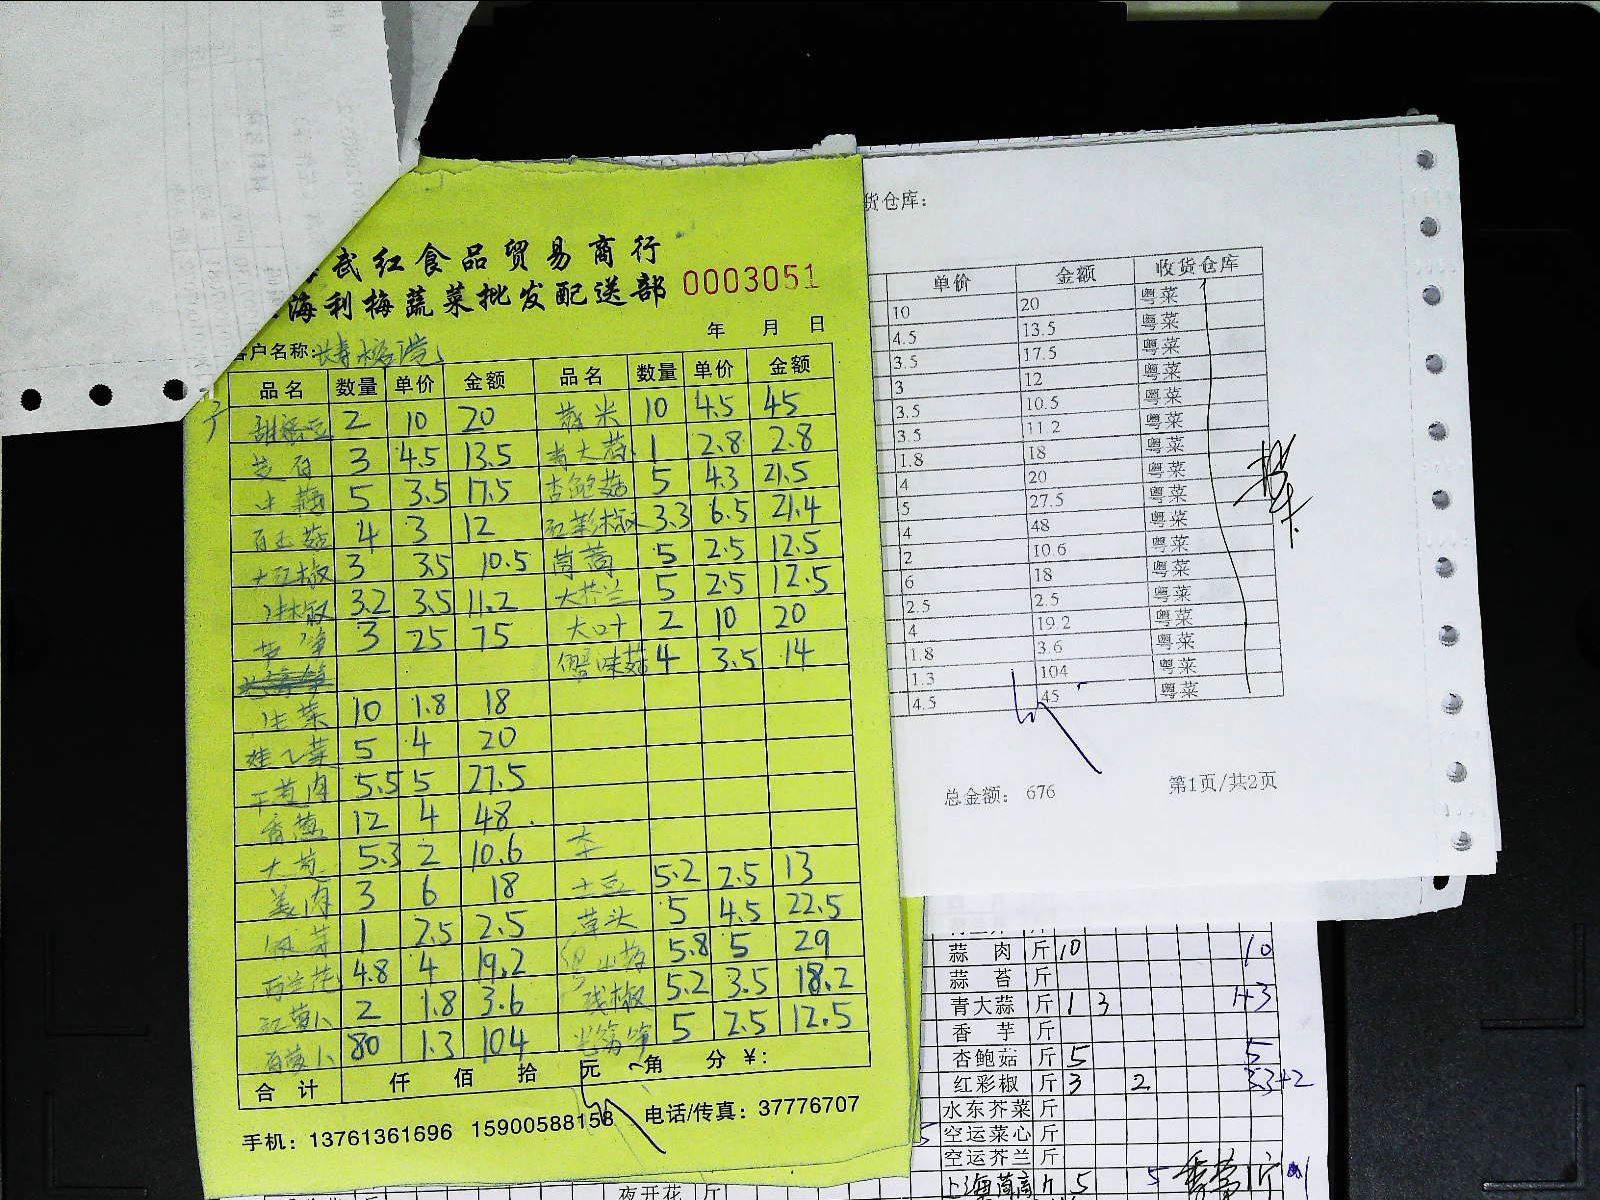 武红食品贸易商行
海利梅蔬菜批发配送部 0003051
年 月 日
客户名称:
品名 数量 单价 金额 品名 数量 单价 金额
2 10 20 米 10 4.5 45
3 4.5 13.5 青大蒜 1 2.8 2.8
5 3.5 17.5 杏鲍菇 5 4.3 21.5
白玉菇 4 3 12 红彩椒 3.3 6.5 21.4
大红椒 3 3.5 10.5 茼蒿 5 2.5 12.5
3.2 3.5 11.2 大芥兰 5 2.5 12.5
3 25 75 大叶 2 10 20
蟹味菇 4 3.5 14
生菜 10 1.8 18
娃菜 5 4 20
5.5 5 27.5
香葱 12 4 48
大葱 5.3 2 10.6
3 6 18 土豆 5.2 2.5 13
1 2.5 2.5 草头 5 4.5 22.5
西兰花 4.8 4 19.2 5.8 5 29
红萝卜 2 1.8 3.6 5.2 3.5 18.2
白萝卜 80 1.3 104 5 2.5 12.5
合计 仟 佰 拾 元 角 分 ¥:
手机：13761361696 15900588158 电话/传真：37776707
货仓库：
单价 金额 收货仓库
10 20 粤菜
4.5 13.5 粤菜
3.5 17.5 粤菜
3 12 粤菜
3.5 10.5 粤菜
3.5 11.2 粤菜
1.8 18 粤菜
4 20 粤菜
5 27.5 粤菜
4 48 粤菜
2 10.6 粤菜
6 18 粤菜
2.5 2.5 粤菜
4 19.2 粤菜
1.8 3.6 粤菜
1.3 104 粤菜
4.5 45 粤菜
总金额： 676 第1页/共2页
蒜肉 斤 10 10
蒜苔 斤
青大蒜 斤 1 3 1+3
香芋 斤
杏鲍菇 斤 5 5
红彩椒 斤 3 2 3.3+2
水东芥菜 斤
空运菜心 斤
空运芥兰 斤
上海茼蒿 斤 5 5
夜开花 斤